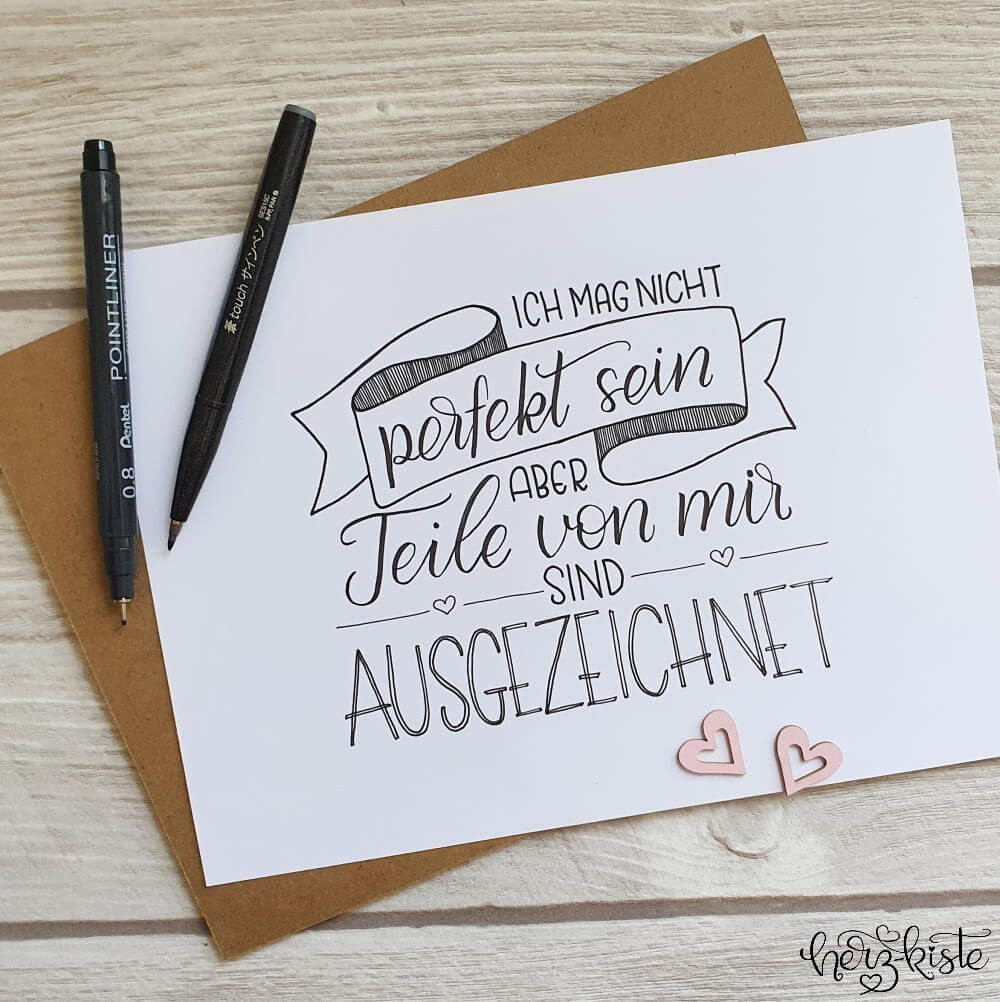 ICH MAG NICHT
perfekt sein
ABER
Teile von mir
SIND
AUSGEZEICHNET
Pentel POINTLINER
0.8
touch サインペン
SES15C
herz-kiste